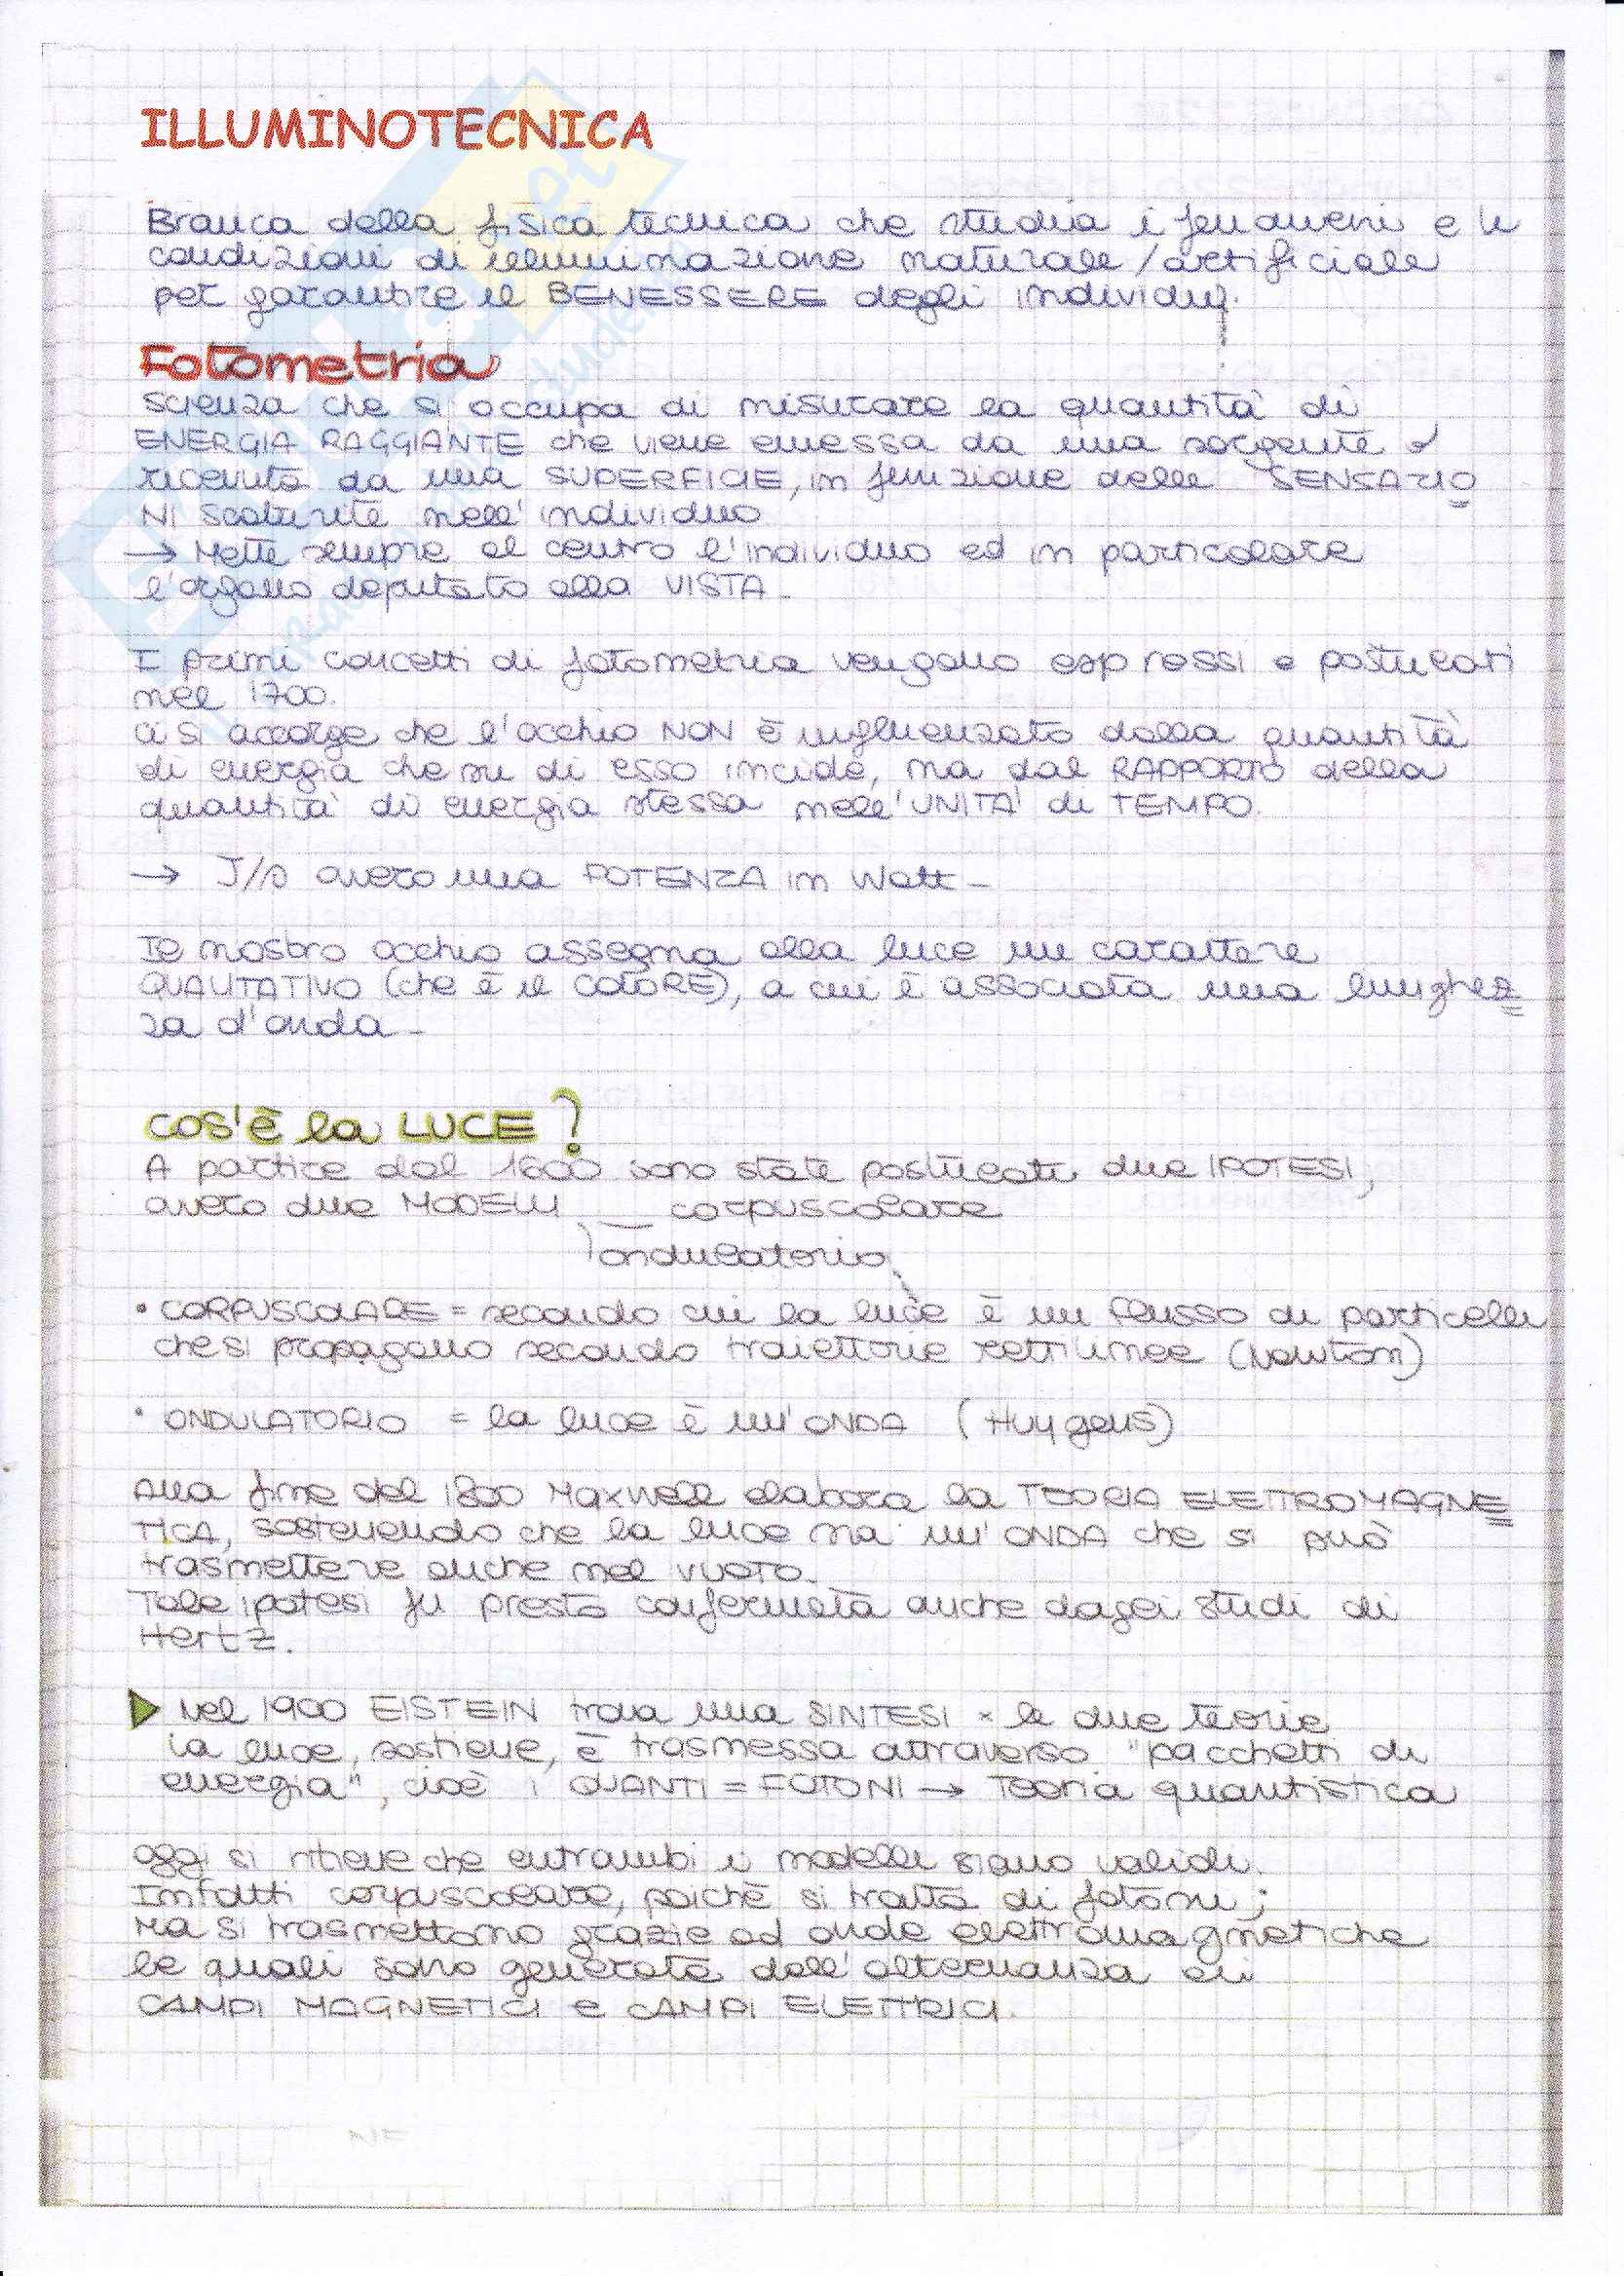 ILLUMINOTECNICA
Branca della fisica tecnica che studia i fenomeni e le
condizioni di illuminazione naturale/artificiale
per garantire il BENESSERE degli individui.
Fotometria
Scienza che si occupa di misurare la quantità di
ENERGIA RAGGIANTE che viene emessa da una sorgente o
ricevuta da una SUPERFICIE, in funzione delle SENSAZIO
NI scaturite nell'individuo
→ Mette sempre al centro l'individuo ed in particolare
l'organo deputato alla VISTA_
I primi concetti di fotometria vengono espressi e postulati
nel 1700.
Ci si accorge che l'occhio NON è influenzato dalla quantità
di energia che su di esso incide, ma dal RAPPORTO della
quantità di energia stessa nell'UNITA' di TEMPO.
→ J/s ovvero una POTENZA in Watt_
Il nostro occhio assegna alla luce un carattere
QUALITATIVO (che è il COLORE), a cui è associata una lunghez
za d'onda_
COS'È la LUCE?
A partire dal 1600 sono state postulate due IPOTESI,
ovvero due MODELLI corpuscolare
ondulatorio
• CORPUSCOLARE = secondo cui la luce è un flusso di particelle
che si propagano secondo traiettorie rettilinee (Newton)
• ONDULATORIO = la luce è un'ONDA (Huygens)
Alla fine del 1800 Maxwell elabora la TEORIA ELETTROMAGNE
TICA, sostenendo che la luce sia un'ONDA che si può
trasmettere anche nel VUOTO.
Tale ipotesi fu presto confermata anche dagli studi di
Hertz.
▶ Nel 1900 EISTEIN trova una SINTESI x le due teorie
la luce, sostiene, è trasmessa attraverso "pacchetti di
energia", cioè i QUANTI = FOTONI → Teoria quantistica
Oggi si ritiene che entrambi i modelli siano validi.
Infatti corpuscolare, poichè si tratta di fotoni;
Ma si trasmettono grazie ad onde elettromagnetiche
le quali sono generate dall'alternanza di
CAMPI MAGNETICI e CAMPI ELETTRICI.